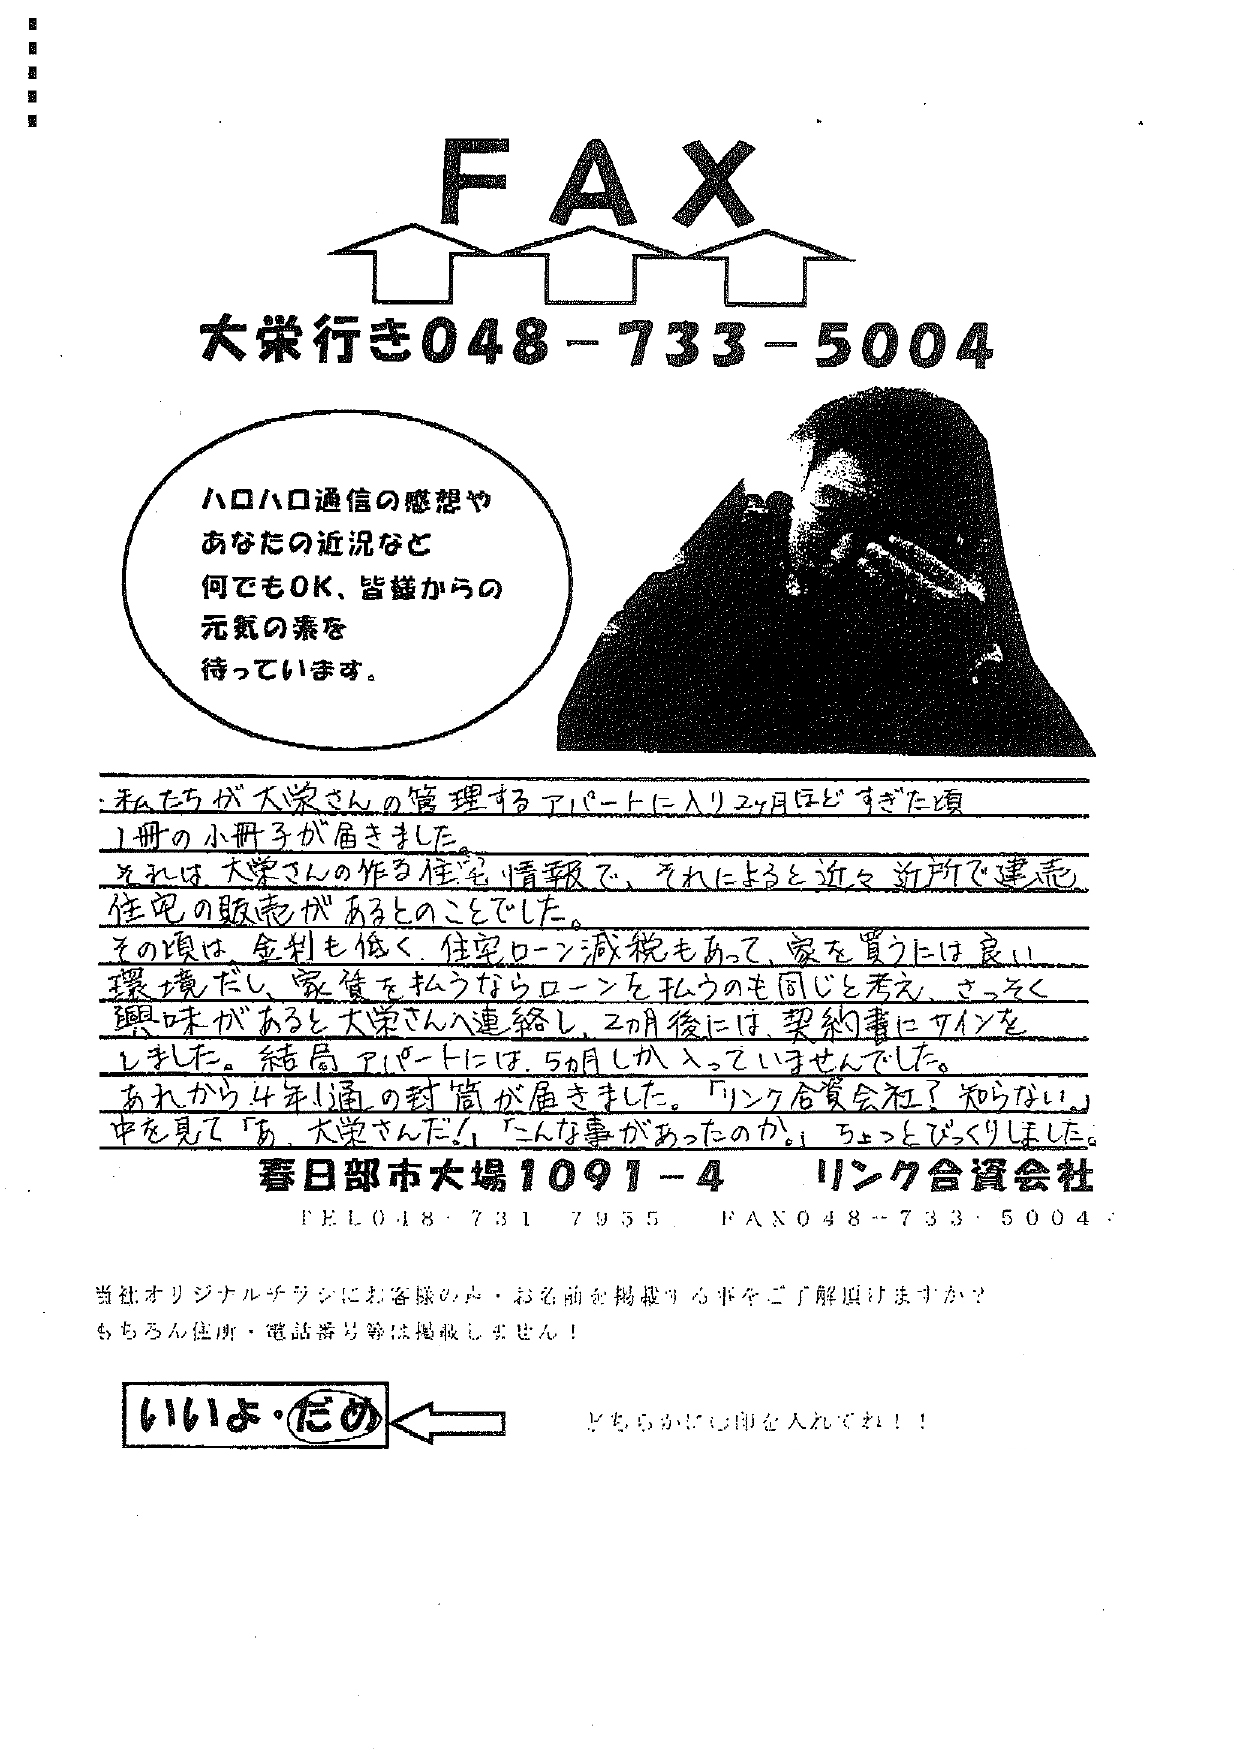 FAX
大栄行き048-733-5004
ハロハロ通信の感想や
あなたの近況など
何でもOK、皆様からの
元気の素を
待っています。
私たちが大栄さんの管理するアパートに入り2ヶ月ほどすぎた頃
1冊の小冊子が届きました。
それは大栄さんの作る住宅情報で、それによると近々近所で建売
住宅の販売があるとのことでした。
その頃は、金利も低く、住宅ローン減税もあって、家を買うには良い
環境だし、家賃を払うならローンを払うのも同じと考え、さっそく
興味があると大栄さんへ連絡し、2ヵ月後には、契約書にサインを
しました。結局アパートには、5ヵ月しか入っていませんでした。
あれから4年1通の封筒が届きました。「リンク合資会社？知らない。」
中を見て「あ、大栄さんだ！」「こんな事があったのか。」ちょっとびっくりしました。
春日部市大場1091-4 リンク合資会社
TEL048-731-7955 FAX048-733-5004
当社オリジナルチラシにお客様の声・お名前を掲載する事をご了解頂けますか？
もちろん住所・電話番号等は掲載しません！
いいよ・だめ
どちらかに○印を入れてね！！